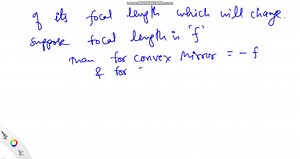 of its focal length which will change.
suppose focal length is 'f'
then for convex mirror = - f
& for